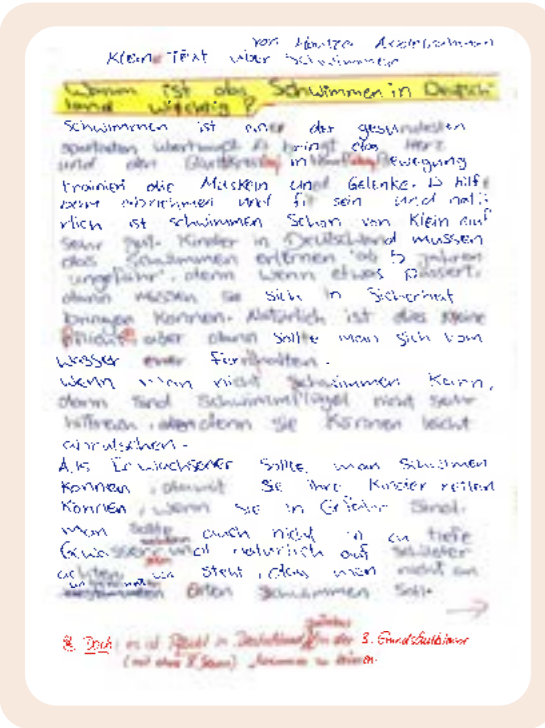 von
Kleine Text über Schwimmen
Warum ist das Schwimmen in Deutsch
land wichtig?
Schwimmen ist einer der gesündesten
sportarten überhaupt. Es bringt das Herz
und den in Bewegung
trainiert die Muskeln und Gelenke. Es hilft
beim abnehmen und fit sein und natü
rlich ist schwimmen Schon von Klein auf
sehr gut. Kinder in Deutschland müssen
das Schwimmen erlernen ab 5 jahren
ungefähr, denn wenn etwas passiert,
dann müssen sie sich in Sicherheit
bringen können. Natürlich ist das keine
Pflicht aber dann sollte man sich vom
Wasser fernhalten.
Wenn man nicht schwimmen kann,
dann sind Schwimmflügel nicht sehr
hilfreich, denn sie können leicht
ausrutschen.
Als Erwachsener sollte man Schwimen
können, damit Sie ihre Kinder retten
können, wenn sie in Gefahr sind.
Man sollte auch nicht in zu tiefe
Gewässer und natürlich auf Schilder
achten, wo steht, dass man nicht an
Orten schwimmen soll.
→
Doch: es ist Pflicht in Deutschland in der 3. Grundschulklasse
(mit etwa 8 Jahren) schwimmen zu lernen.